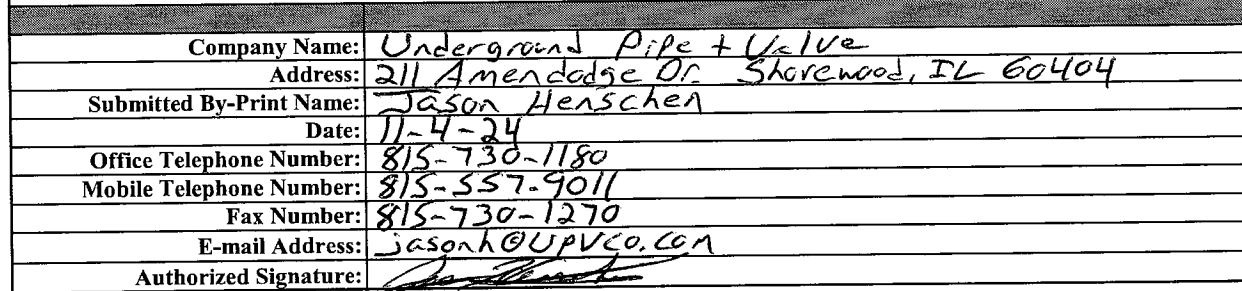 Company Name: Underground Pipe + Valve
Address: 211 Amendodge Dr Shorewood, IL 60404
Submitted By-Print Name: Jason Henschen
Date: 11-4-24
Office Telephone Number: 815-730-1180
Mobile Telephone Number: 815-557-9011
Fax Number: 815-730-1270
E-mail Address: jasonh@UpVco.com
Authorized Signature: